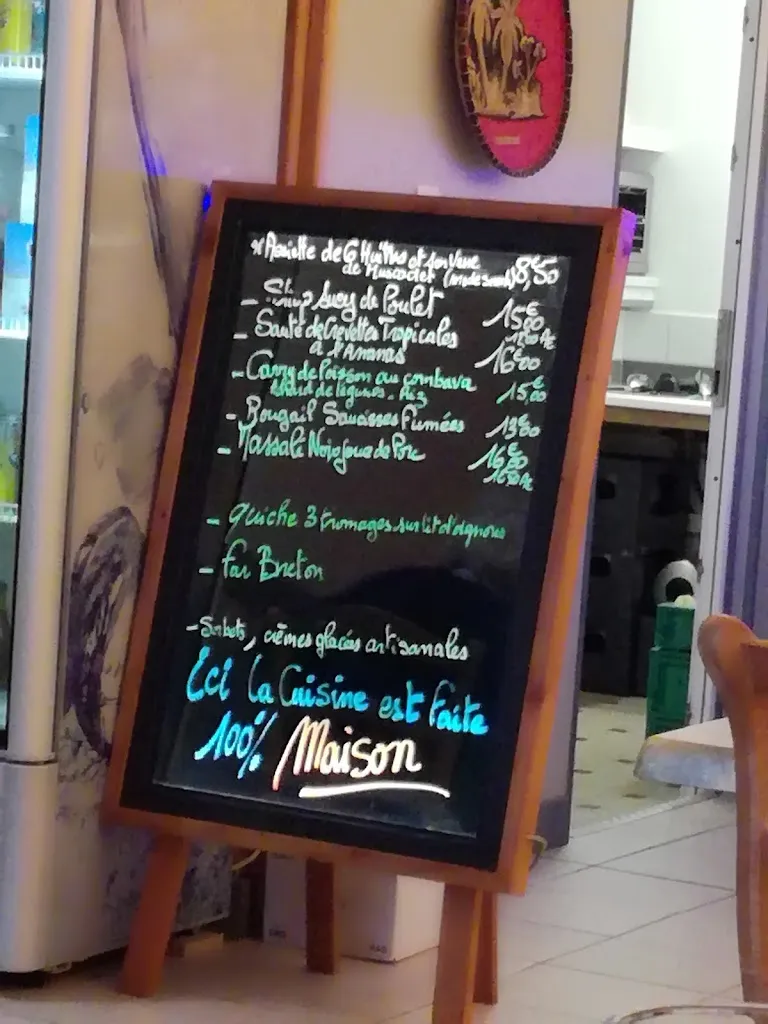 Assiette de 6 Huîtres et son Verre 8,50
de Muscadet
- Suey de Poulet 15€00
- Sauté de Crevettes Tropicales
à l'Ananas 16€00
- Carry de Poisson au combava 15,00
de légumes - Riz
- Rougail Saucisses Fumées 13€00
- Massalé Noix joue de Porc 16€50
- quiche 3 fromages sur lit d'oignons
- far Breton
- Sorbets, crèmes glacées artisanales
Ici la Cuisine est faite
100% Maison